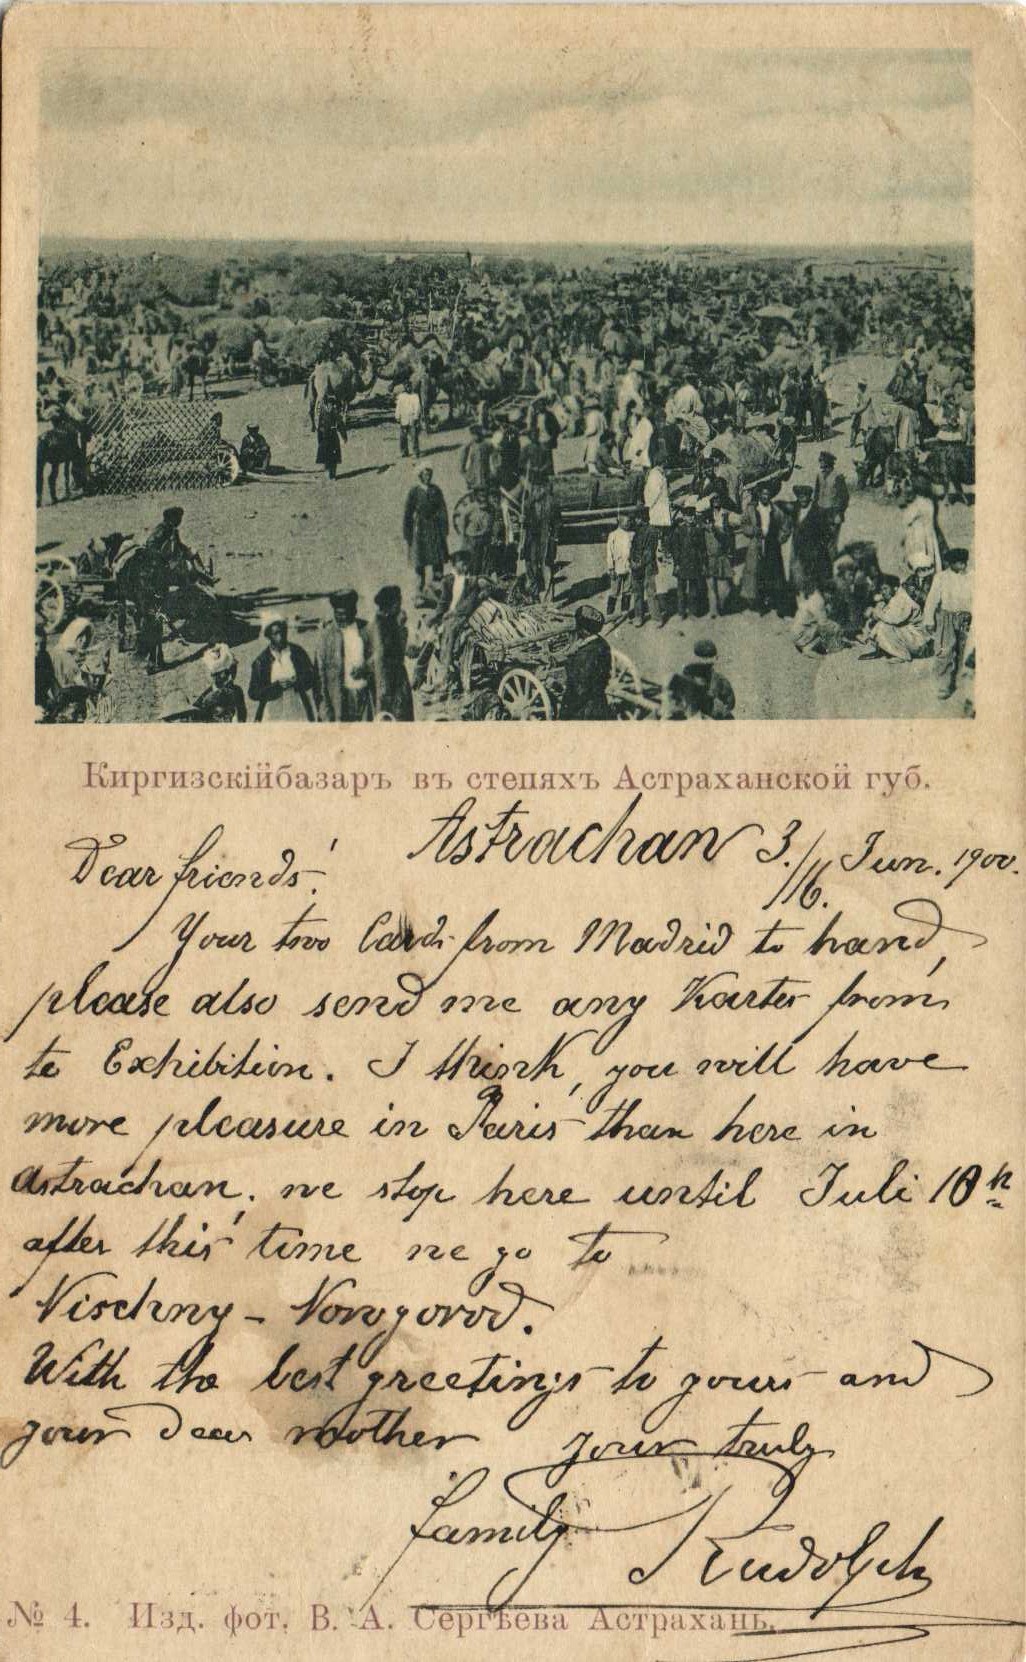 Киргизскійбазаръ въ степяхъ Астраханской губ.
Astrachan 3./16. Jun. 1900.
Dear friends!
Your two Cards from Madrid to hand,
please also send me any Karten from
te Exhibition. I think, you will have
more pleasure in Paris than here in
Astrachan. we stop here until Juli 10th
after this time we go to
Nischny - Nowgorod.
With the best greetings to yours and
your dear mother your truly
family Rudolph
№ 4. Изд. фот. В. А. Сергѣева Астрахань.